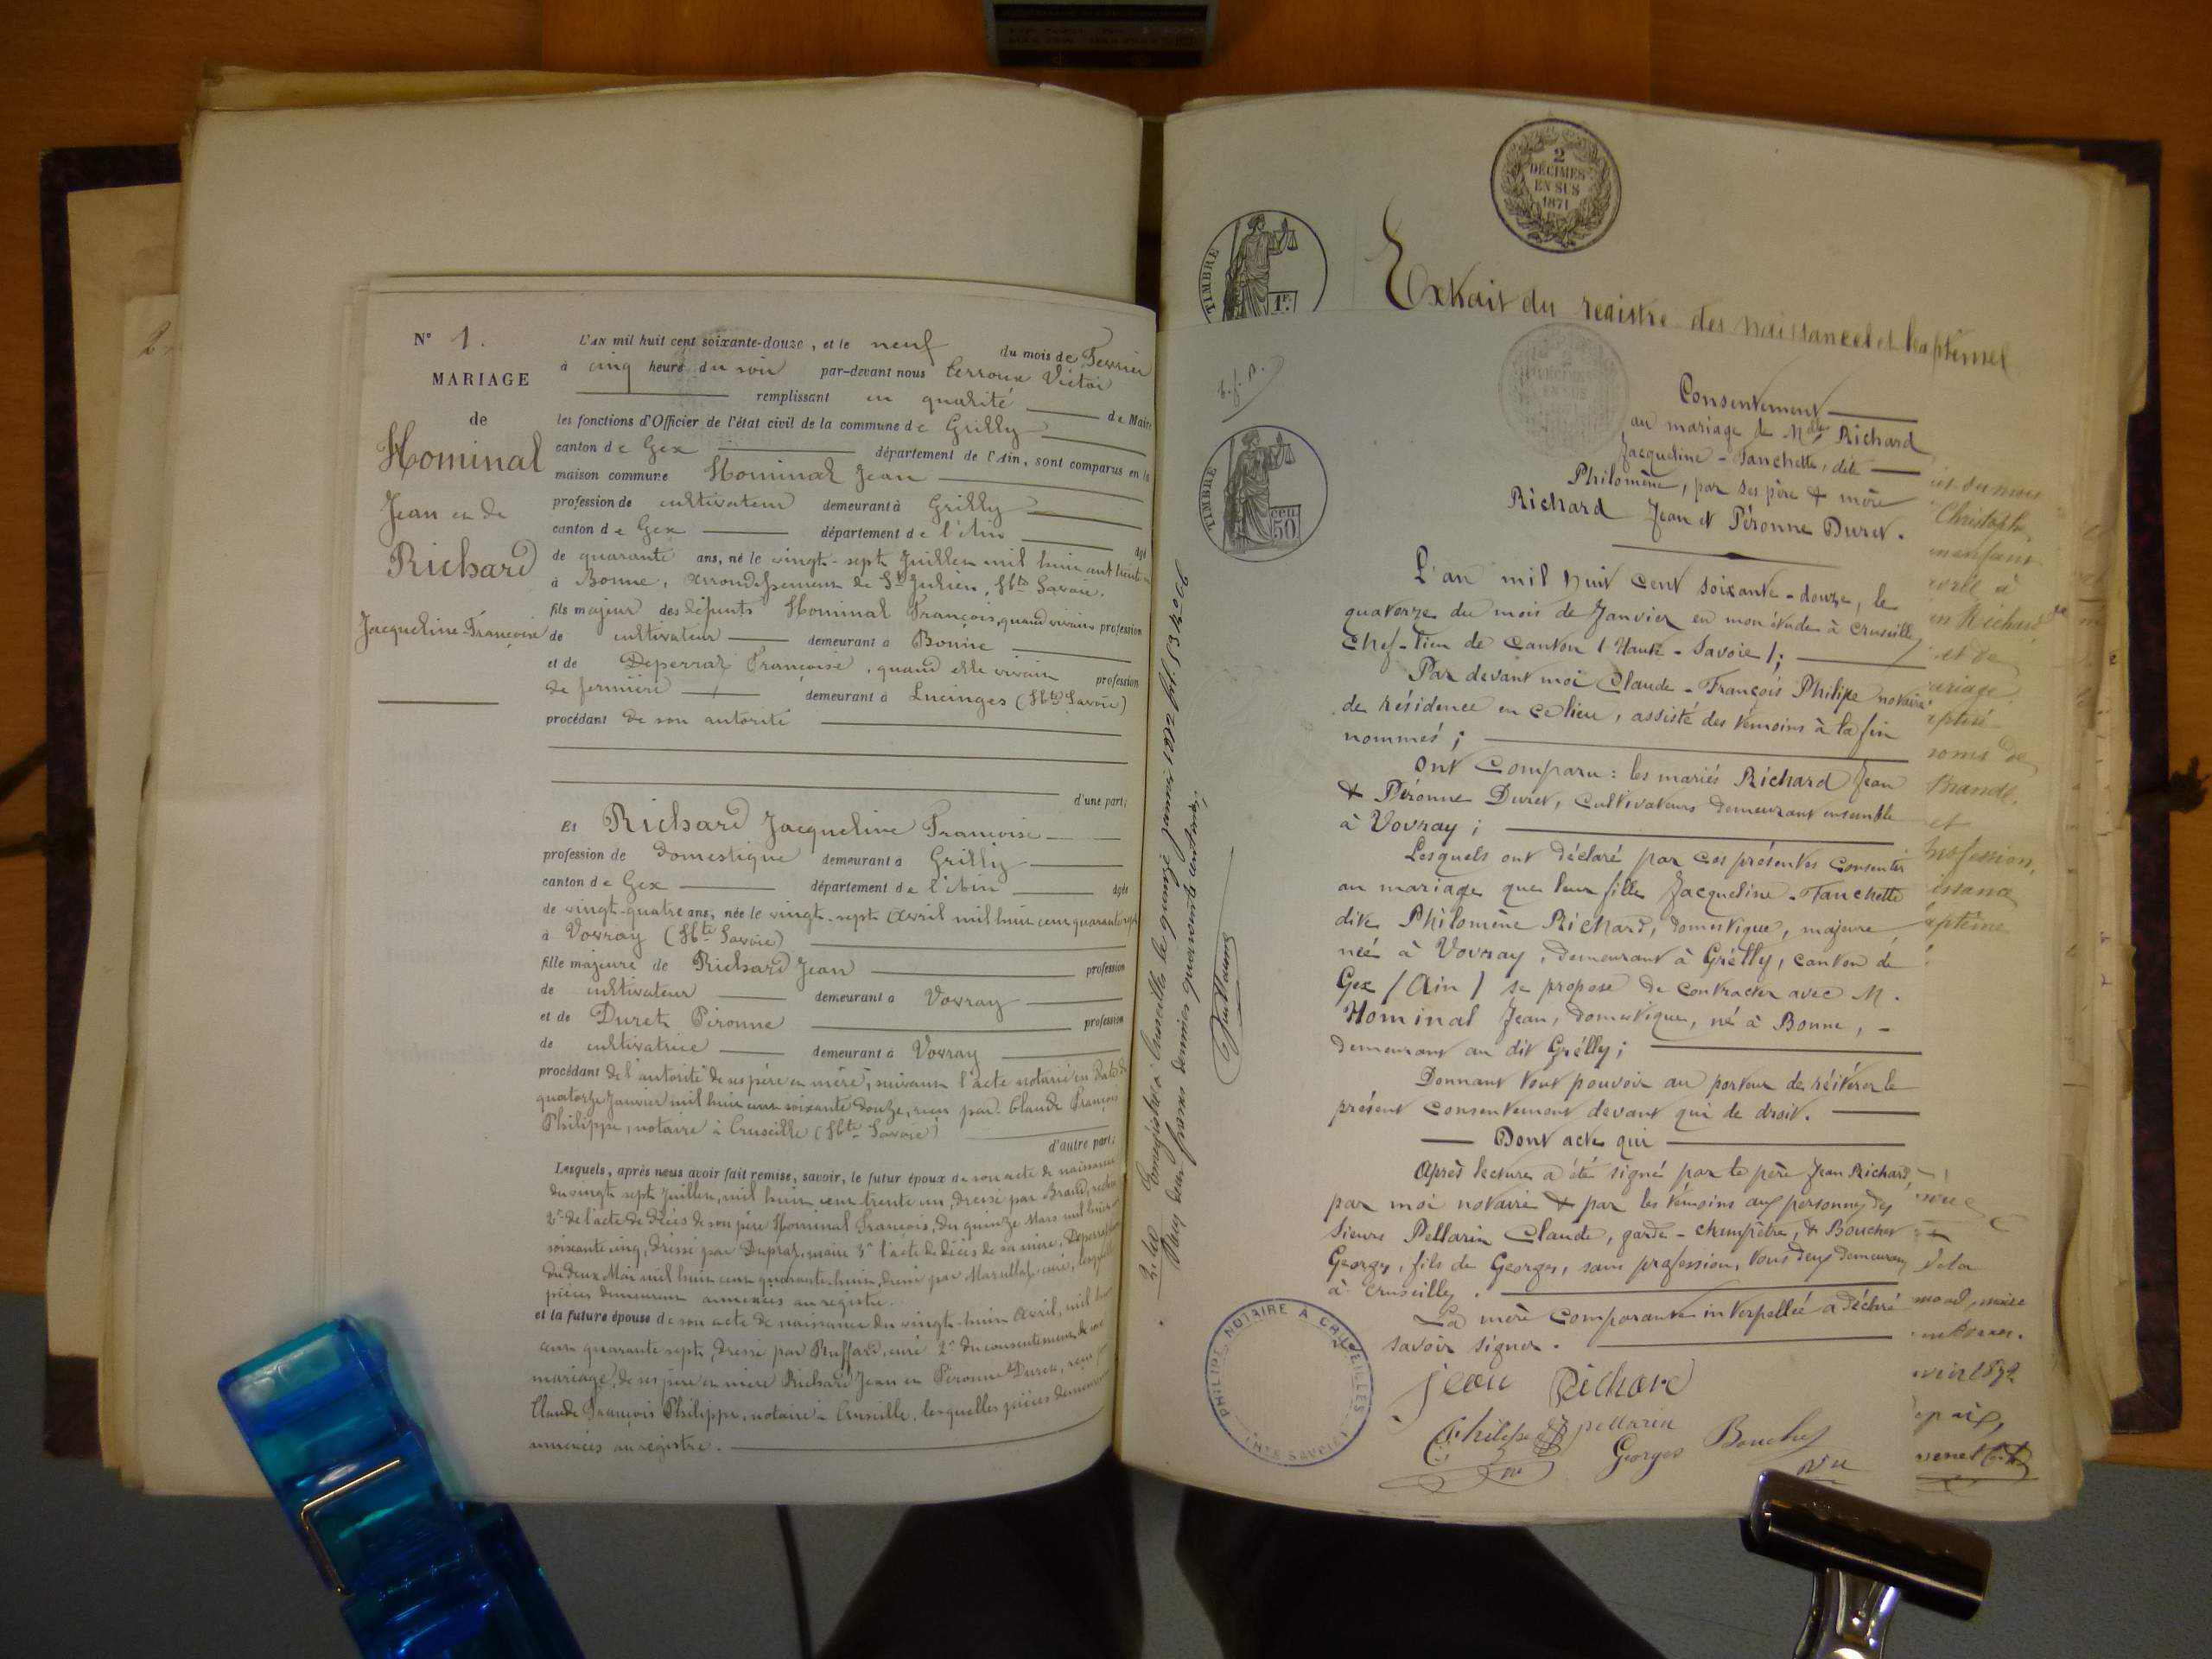 N° 1.
MARIAGE
de
Hominal
Jean et de
Richard
Jacqueline-Françoise
L'AN mil huit cent soixante-douze, et le neuf du mois de Fevrier
à cinq heure du soir par-devant nous Terroux Victor
remplissant en qualité de Maire
les fonctions d'Officier de l'état civil de la commune de Grilly
canton de Gex département de l'Ain, sont comparus en la
maison commune Hominal Jean
profession de cultivateur demeurant à Grilly
canton de Gex département de l'Ain âgé
de quarante ans, né le vingt-sept Juillet mil huit cent trente
à Bonne, arrondissement de St Julien, Hte Savoie.
fils majeur des défunts Hominal François, quand vivait profession
de cultivateur demeurant à Bonne
et de Deperraz Françoise, quand elle vivait profession
de fermière demeurant à Lucinges (Hte Savoie)
procédant de son autorité
d'une part;
Et Richard Jacqueline Françoise
profession de domestique demeurant à Grilly
canton de Gex département de l'Ain âgée
de vingt-quatre ans, née le vingt-sept Avril mil huit cent quarante sept
à Vovray (Hte Savoie)
fille majeure de Richard Jean profession
de cultivateur demeurant à Vovray
et de Duret Péronne profession
de cultivatrice demeurant à Vovray
procédant de l'autorité de ses père et mère, suivant l'acte notarié en date du
quatorze Janvier mil huit cent soixante douze, reçu par Claude François
Philippe, notaire à Cruseille (Hte Savoie)
d'autre part;
Lesquels, après nous avoir fait remise, savoir, le futur époux de son acte de naissance
du vingt sept Juillet, mil huit cent trente un, dressé par Brand,
2° de l'acte de décès de son père Hominal François, du quinze Mars mil huit cent
soixante cinq, dressé par Dupraz, maire 3° l'acte de décès de sa mère, Deperraz
du deux Mai mil huit cent quarante-huit, dressé par curé, lesquelles
pièces demeurent annexées au registre.
et la future épouse de son acte de naissance du vingt-huit Avril, mil huit
cent quarante sept, dressé par Ruffard, curé 2° du consentement de son
mariage, de ses père et mère Richard Jean et Péronne Duret, reçu par
Claude François Philippe, notaire à Cruseille, lesquelles pièces demeurent
annexées au registre.
2 DÉCIMES EN SUS 1871
TIMBRE 1F.
Extrait du registre des naissances et baptêmes
TIMBRE 50 cen
Consentement
au mariage de Mlle Richard
Jacqueline-Fanchette, dite
Philomène, par ses père & mère
Richard Jean et Péronne Duret.
L'an mil huit cent soixante-douze, le
quatorze du mois de Janvier en mon étude à Cruseilles
chef-lieu de Canton (Haute-Savoie);
Par devant moi Claude-François Philippe notaire
de résidence en ce lieu, assisté des témoins à la fin
nommés;
Ont Comparu: les mariés Richard Jean
& Péronne Duret, Cultivateurs demeurant ensemble
à Vovray;
Lesquels ont déclaré par ces présentes consentir
au mariage que leur fille Jacqueline-Fanchette
dite Philomène Richard, domestique, majeure
née à Vovray, demeurant à Grélly, canton de
Gex (Ain) se propose de contracter avec M.
Hominal Jean, domestique, né à Bonne,
demeurant au dit Grélly;
Donnant tout pouvoir au porteur de réitérer le
présent consentement devant qui de droit.
Dont acte qui
Après lecture a été signé par le père Jean Richard,
par moi notaire & par les témoins aux personnes des
Sieurs Pellarin Claude, garde-champêtre, & Bouchet
Georges, fils de Georges, sans profession, tous deux demeurant
à Cruseilles.
La mère comparante interpellée a déclaré
savoir signer.
jean Richard
Philippe pellarin Bouchet
Georges
PHILIPPE NOTAIRE A CRUSEILLES (HTE SAVOIE)
Enregistré à Cruseilles le quinze janvier 1872
Reçu deux francs quarante centimes
Guillaume